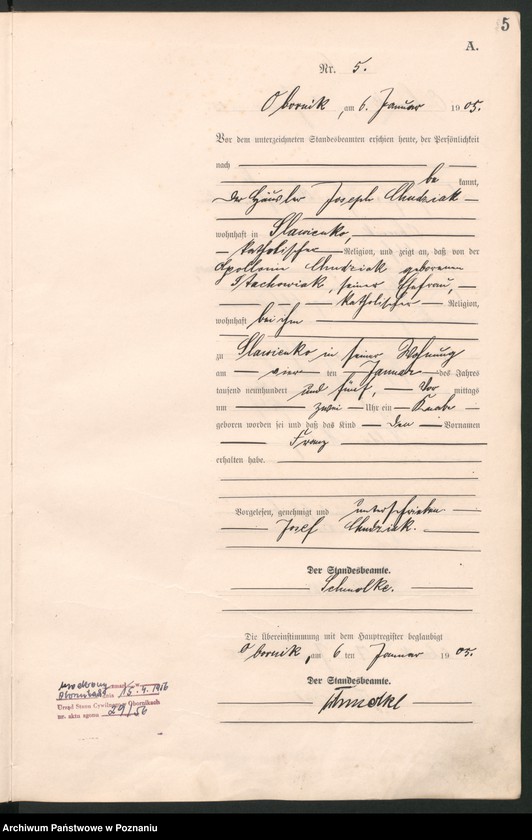 5
A.
Nr. 5.
Obornik, am 6. Januar 1905.
Vor dem unterzeichneten Standesbeamten erschien heute, der Persönlichkeit
nach
be kannt,
der Häusler Joseph Chudziak
wohnhaft in Slawienko,
katholischer Religion, und zeigt an, daß von der
Apollonia Chudziak geborenen
Stachowiak, seiner Ehefrau,
katholischer Religion,
wohnhaft bei ihm
zu Slawienko in seiner Wohnung
am vier ten Januar des Jahres
tausend neunhundert und fünf, Vor mittags
um zwei Uhr ein Knabe
geboren worden sei und daß das Kind den Vornamen
Franz
erhalten habe.
Vorgelesen, genehmigt und unterschrieben
Josef Chudziak.
Der Standesbeamte.
Schmolke.
Die Übereinstimmung mit dem Hauptregister beglaubigt
Obornik, am 6 ten Januar 1905.
Der Standesbeamte.
zmarł
dnia 15.4.1956
Urząd Stanu Cywilnego Obornikach
nr. aktu zgonu 29/56
Archiwum Państwowe w Poznaniu